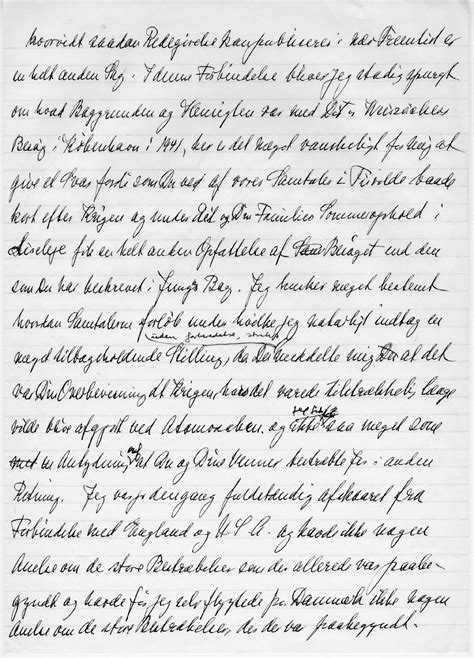 hvorvidt saadan Redegørelse kan publiceres i nær Fremtid er
en helt anden Sag. I denne Forbindelse bliver jeg stadig spurgt
om hvad Baggrunden og Hensigten var med Dit og Weizsäckers
Besøg i København i 1941, her er det meget vanskeligt for mig at
give et Svar fordi som Du ved af vores Samtaler i Tisvilde baade
kort efter Krigen og under Dit og Din Families Sommerophold i
Liseleje fik en helt anden Opfattelse af Besøget end den
som Du har beskrevet i Jungks Bog. Jeg husker meget bestemt
hvordan Samtalerne forløb under hvilke jeg naturligt indtog en
meget tilbageholdende Stilling, da Du meddelte mig at det
var Din Overbevisning at Krigen, hvis det varede tilstrækkelig længe
vilde blive afgjort ved Atomvaaben, og ikke saa meget som
en Antydning af at Du og Dine Venner bestræbte jer i anden
Retning. Jeg var jo dengang fuldstændig afskaaret fra
Forbindelse med England og U.S.A. og havde ikke nogen
Anelse om de store Bestræbelser som der allerede var paabe-
gyndt og havde før jeg selv flygtede fra Danmark ikke nogen
Anelse om de store Bestræbelser, der da var paabegyndt.